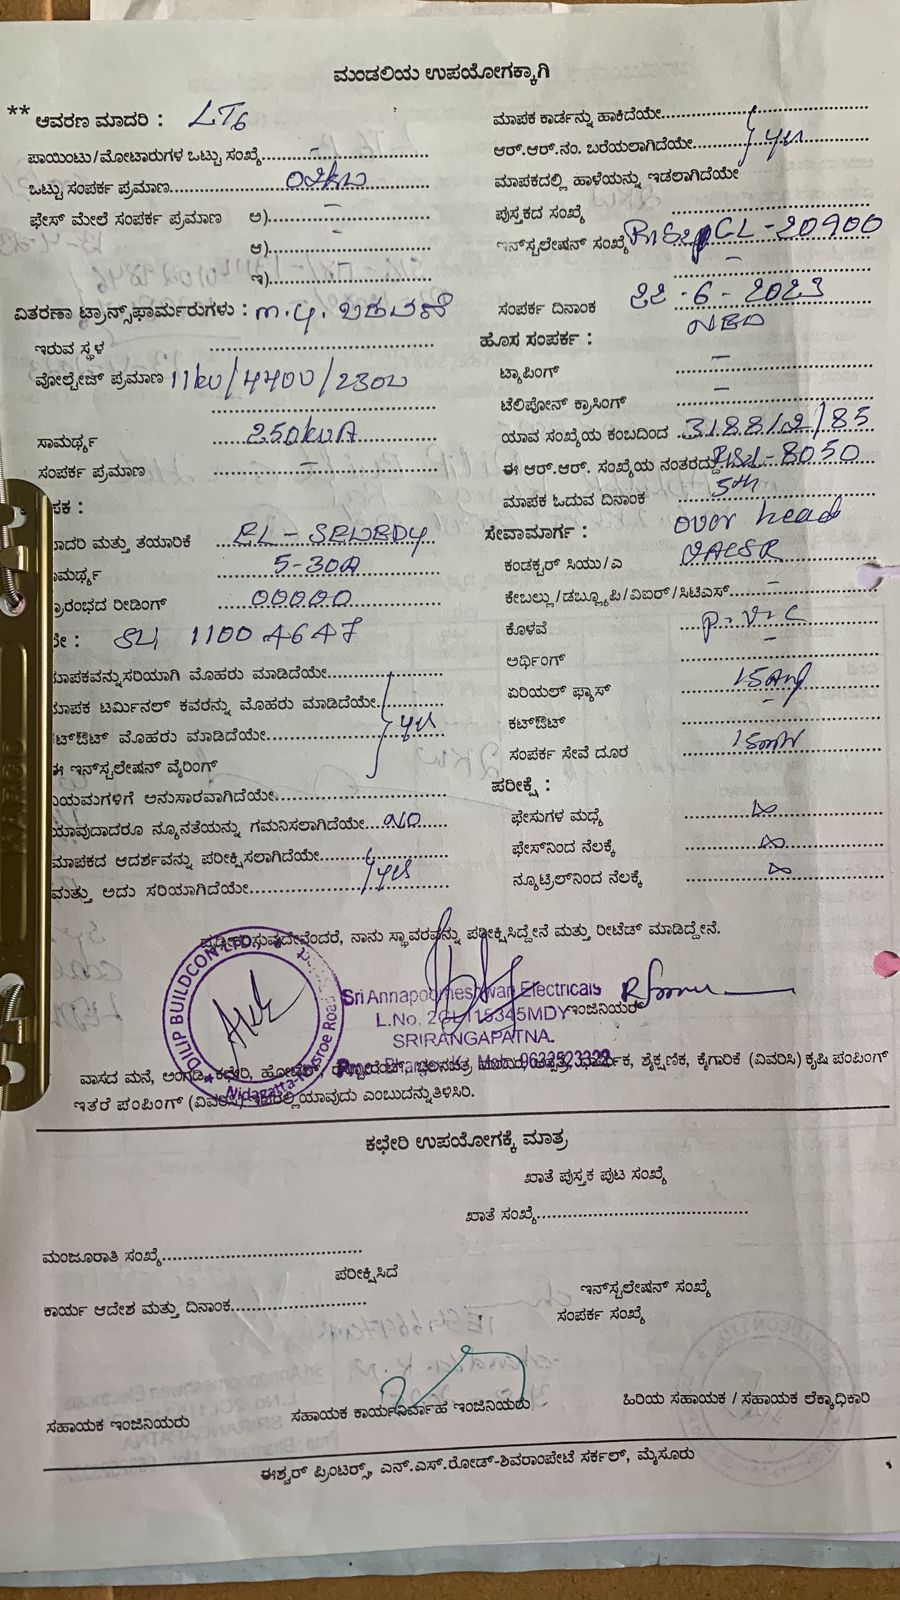 ಮಂಡಲಿಯ ಉಪಯೋಗಕ್ಕಾಗಿ
** ಆವರಣ ಮಾದರಿ : LT6
ಪಾಯಿಂಟು/ಮೋಟಾರುಗಳ ಒಟ್ಟು ಸಂಖ್ಯೆ -
ಒಟ್ಟು ಸಂಪರ್ಕ ಪ್ರಮಾಣ 02kw
ಫೇಸ್ ಮೇಲೆ ಸಂಪರ್ಕ ಪ್ರಮಾಣ ಅ) -
ಆ) -
ಇ) -
ವಿತರಣಾ ಟ್ರಾನ್ಸ್‌ಫಾರ್ಮರುಗಳು :
ಇರುವ ಸ್ಥಳ
ವೋಲ್ಟೇಜ್ ಪ್ರಮಾಣ 11kv/4400/230v
ಸಾಮರ್ಥ್ಯ 250kvA
ಸಂಪರ್ಕ ಪ್ರಮಾಣ -
ಪಕ :
ಾದರಿ ಮತ್ತು ತಯಾರಿಕೆ
ಾಮರ್ಥ್ಯ 5-30A
್ರಾರಂಭದ ರೀಡಿಂಗ್ 00000
11004647
ಾಪಕವನ್ನು ಸರಿಯಾಗಿ ಮೊಹರು ಮಾಡಿದೆಯೇ
ಮಾಪಕ ಟರ್ಮಿನಲ್ ಕವರನ್ನು ಮೊಹರು ಮಾಡಿದೆಯೇ
ಕಟ್‌ಔಟ್ ಮೊಹರು ಮಾಡಿದೆಯೇ yes
ಈ ಇನ್‌ಸ್ಟಲೇಷನ್ ವೈರಿಂಗ್
ನಿಯಮಗಳಿಗೆ ಅನುಸಾರವಾಗಿದೆಯೇ
ಯಾವುದಾದರೂ ನ್ಯೂನತೆಯನ್ನು ಗಮನಿಸಲಾಗಿದೆಯೇ NO
ಮಾಪಕದ ಆದರ್ಶವನ್ನು ಪರೀಕ್ಷಿಸಲಾಗಿದೆಯೇ
ಮತ್ತು ಅದು ಸರಿಯಾಗಿದೆಯೇ yes
ಮಾಪಕ ಕಾರ್ಡನ್ನು ಹಾಕಿದೆಯೇ
ಆರ್.ಆರ್.ನಂ. ಬರೆಯಲಾಗಿದೆಯೇ yes
ಮಾಪಕದಲ್ಲಿ ಹಾಳೆಯನ್ನು ಇಡಲಾಗಿದೆಯೇ
ಪುಸ್ತಕದ ಸಂಖ್ಯೆ
ಇನ್‌ಸ್ಟಲೇಷನ್ ಸಂಖ್ಯೆ CL-20900
-
ಸಂಪರ್ಕ ದಿನಾಂಕ 22-6-2023
ಹೊಸ ಸಂಪರ್ಕ :
ಟ್ಯಾಪಿಂಗ್ -
ಟೆಲಿಪೋನ್ ಕ್ರಾಸಿಂಗ್ -
ಯಾವ ಸಂಖ್ಯೆಯ ಕಂಬದಿಂದ 3188/2/85
ಈ ಆರ್.ಆರ್. ಸಂಖ್ಯೆಯ ನಂತರದ್ದು 8050
ಮಾಪಕ ಓದುವ ದಿನಾಂಕ 5th
ಸೇವಾಮಾರ್ಗ : over head
ಕಂಡಕ್ಟರ್ ಸಿಯು/ಎ
ಕೇಬಲ್ಲು/ಡಬ್ಲ್ಯೂಪಿ/ವಿಐರ್/ಸಿಟಿಎಸ್ -
ಕೊಳವೆ P-V-C
ಅರ್ಥಿಂಗ್ -
ಏರಿಯಲ್ ಫ್ಯಾಸ್ 15Amp
ಕಟ್‌ಔಟ್ -
ಸಂಪರ್ಕ ಸೇವೆ ದೂರ
ಪರೀಕ್ಷೆ :
ಫೇಸುಗಳ ಮಧ್ಯೆ ∞
ಫೇಸ್‌ನಿಂದ ನೆಲಕ್ಕೆ ∞
ನ್ಯೂಟ್ರಿಲ್‌ನಿಂದ ನೆಲಕ್ಕೆ ∞
ದೃಢೀಕರಿಸುವುದೇನೆಂದರೆ, ನಾನು ಸ್ಥಾವರವನ್ನು ಪರೀಕ್ಷಿಸಿದ್ದೇನೆ ಮತ್ತು ರೀಟೆಡ್ ಮಾಡಿದ್ದೇನೆ.
DILIP BUILDCON LTD.
Nidagatta-Mysore Road
Sri Annapoorneshwari Electricals
L.No. 2CL115345MDY
ಇಂಜಿನಿಯರ್
SRIRANGAPATNA.
Mob: 9632523322
ವಾಸದ ಮನೆ, ಅಂಗಡಿ, ಕಛೇರಿ, ಹೋಟೆಲ್, ಶೈಕ್ಷಣಿಕ, ಕೈಗಾರಿಕೆ (ವಿವರಿಸಿ) ಕೃಷಿ ಪಂಪಿಂಗ್
ಇತರೆ ಪಂಪಿಂಗ್ (ವಿವರಿಸಿ) ಇವರಲ್ಲಿ ಯಾವುದು ಎಂಬುದನ್ನು ತಿಳಿಸಿರಿ.
ಕಛೇರಿ ಉಪಯೋಗಕ್ಕೆ ಮಾತ್ರ
ಖಾತೆ ಪುಸ್ತಕ ಪುಟ ಸಂಖ್ಯೆ
ಖಾತೆ ಸಂಖ್ಯೆ
ಮಂಜೂರಾತಿ ಸಂಖ್ಯೆ
ಪರೀಕ್ಷಿಸಿದೆ
ಇನ್‌ಸ್ಟಲೇಷನ್ ಸಂಖ್ಯೆ
ಕಾರ್ಯ ಆದೇಶ ಮತ್ತು ದಿನಾಂಕ
ಸಂಪರ್ಕ ಸಂಖ್ಯೆ
ಸಹಾಯಕ ಇಂಜಿನಿಯರು
ಸಹಾಯಕ ಕಾರ್ಯನಿರ್ವಾಹ ಇಂಜಿನಿಯರು
ಹಿರಿಯ ಸಹಾಯಕ / ಸಹಾಯಕ ಲೆಕ್ಕಾಧಿಕಾರಿ
ಈಶ್ವರ್ ಪ್ರಿಂಟರ್ಸ್, ಎನ್.ಎಸ್.ರೋಡ್-ಶಿವರಾಂಪೇಟೆ ಸರ್ಕಲ್, ಮೈಸೂರು